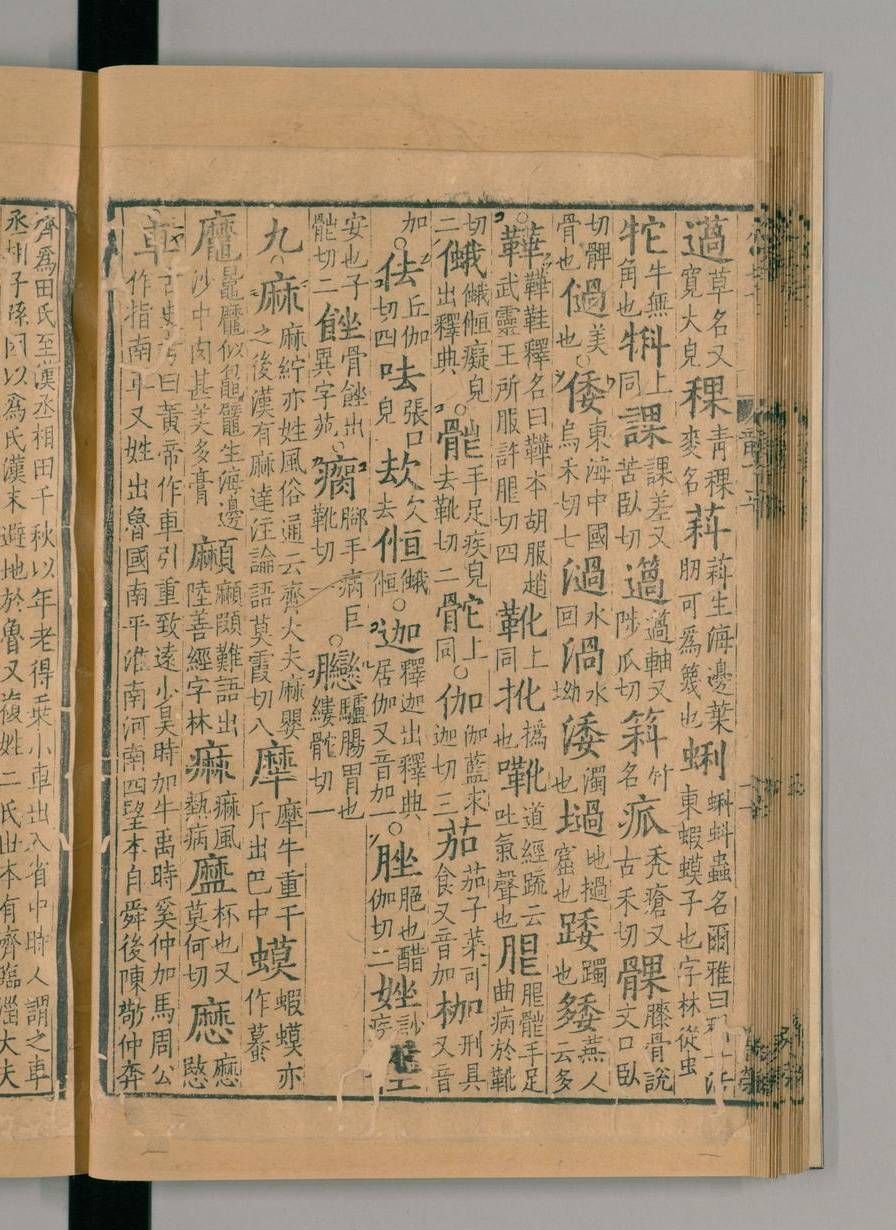 薖草名又寬大皃稞青稞麥名萪萪生海邊葉肕可為篾也蝌蝌蚪蟲名爾雅曰東蝦蟆子也字林從虫
牠牛無角也上同課課差又苦臥切薖薖軸又陟瓜切竹名禿瘡又古禾切髁膝骨說文口臥
切髀骨也美也○倭東海中國烏禾切七渦水回水坳涹濁也堝地窟也踒踒也燕人云多
○鞾鞾鞋釋名曰鞾本胡服趙武靈王所服許切四靴上同撝也道經疏云吐氣聲也手足曲病於靴
切二癡皃出釋典○手足疾皃去靴切二上同○伽伽藍求迦切三茄茄子菜可食又音加枷刑具又音
加○佉丘伽切四呿張口皃欠去○迦釋迦出釋典居伽又音加一○脞脃也醋伽切二訬疾
安也子切二骨出異字苑○瘸腳手病巨靴切一○驢腸胃也縷切一
九○麻麻紵亦姓風俗通云齊大夫麻嬰之後漢有麻達注論語莫霞切八犘犘牛重千斤出巴中蟆蝦蟆亦作
似鼊生海邊沙中肉甚美多膏難語出陸善經字林痲痲風熱病杯也又莫何切
車古史考曰黃帝作車引重致遠少昊時加牛禹時奚仲加馬周公作指南車又姓出魯國南平淮南河南四望本自舜後陳敬仲奔
齊為田氏至漢丞相田千秋以年老得乘小車出入省中時人謂之車丞相子孫因以為氏漢末避地於魯又複姓二氏世本有齊臨淄大夫